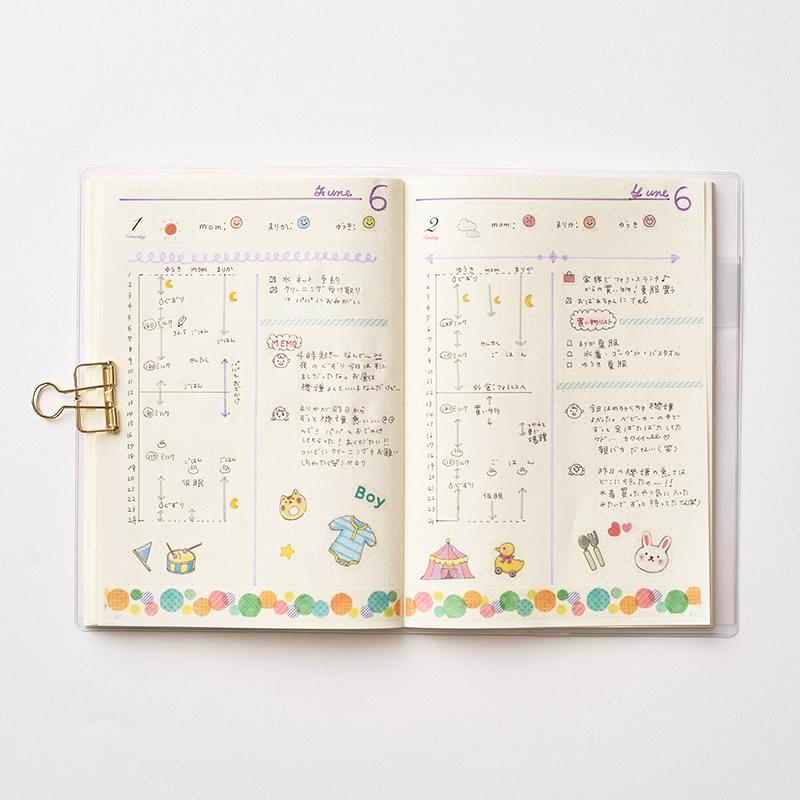 June 6
1
Saturday
mom:
まりか:
ゆうき:
ゆうき mom まりか
1
2
3 ぐずり
4
5
6 ミルク
7 36.5 ごはん
8
9 せんたく
10 ミルク
11 ごはん
12
13
14 ミルク
15
16
17
18 ミルク
19 ごはん
20 仮眠
21
22 ぐずり
23
24
パパとおでかけ
水ネット予約
クリーニング受け取り
→パパにおねがい
MEMO
4時起き〜 なんで〜
夜のぐずり今日はなし
機嫌よくていいよなんだけど〜
まりかが昨日から
ずっと機嫌悪い…@@
ので!! パパとおでかけ
してもらった!ありがたい!!
ついでにクリーニングもお願い
Boy
June 6
2
Sunday
mom:
まりか:
ゆうき
ゆうき mom まりか
1 ぐずり
2
3
4
5 ミルク
6
7 せんたく
8 ごはん
9
10 ミルク
11
12 外食:ファミレスへ
13
14 ミルク 買い物
15
16
17
18
19 ミルク ごはん
20
21 ぐずり 仮眠
22
23
24
家族でファミレスランチ♪
からの買い物! 夏服買う
おばあちゃんにTel
買い物リスト
まりか夏服
水着・ゴーグル・バスタオル
ゆうき夏服
今日はめちゃくちゃ機嫌
よかった。ベビーカーの中で
ずっと足ばたばたしてた
けど… カワイイ
親バカだない(笑)
昨日の機嫌の悪さは
どこに行ったの〜!!
水着買ったやつ気に入った
みたいでずっと持ってたな(笑)